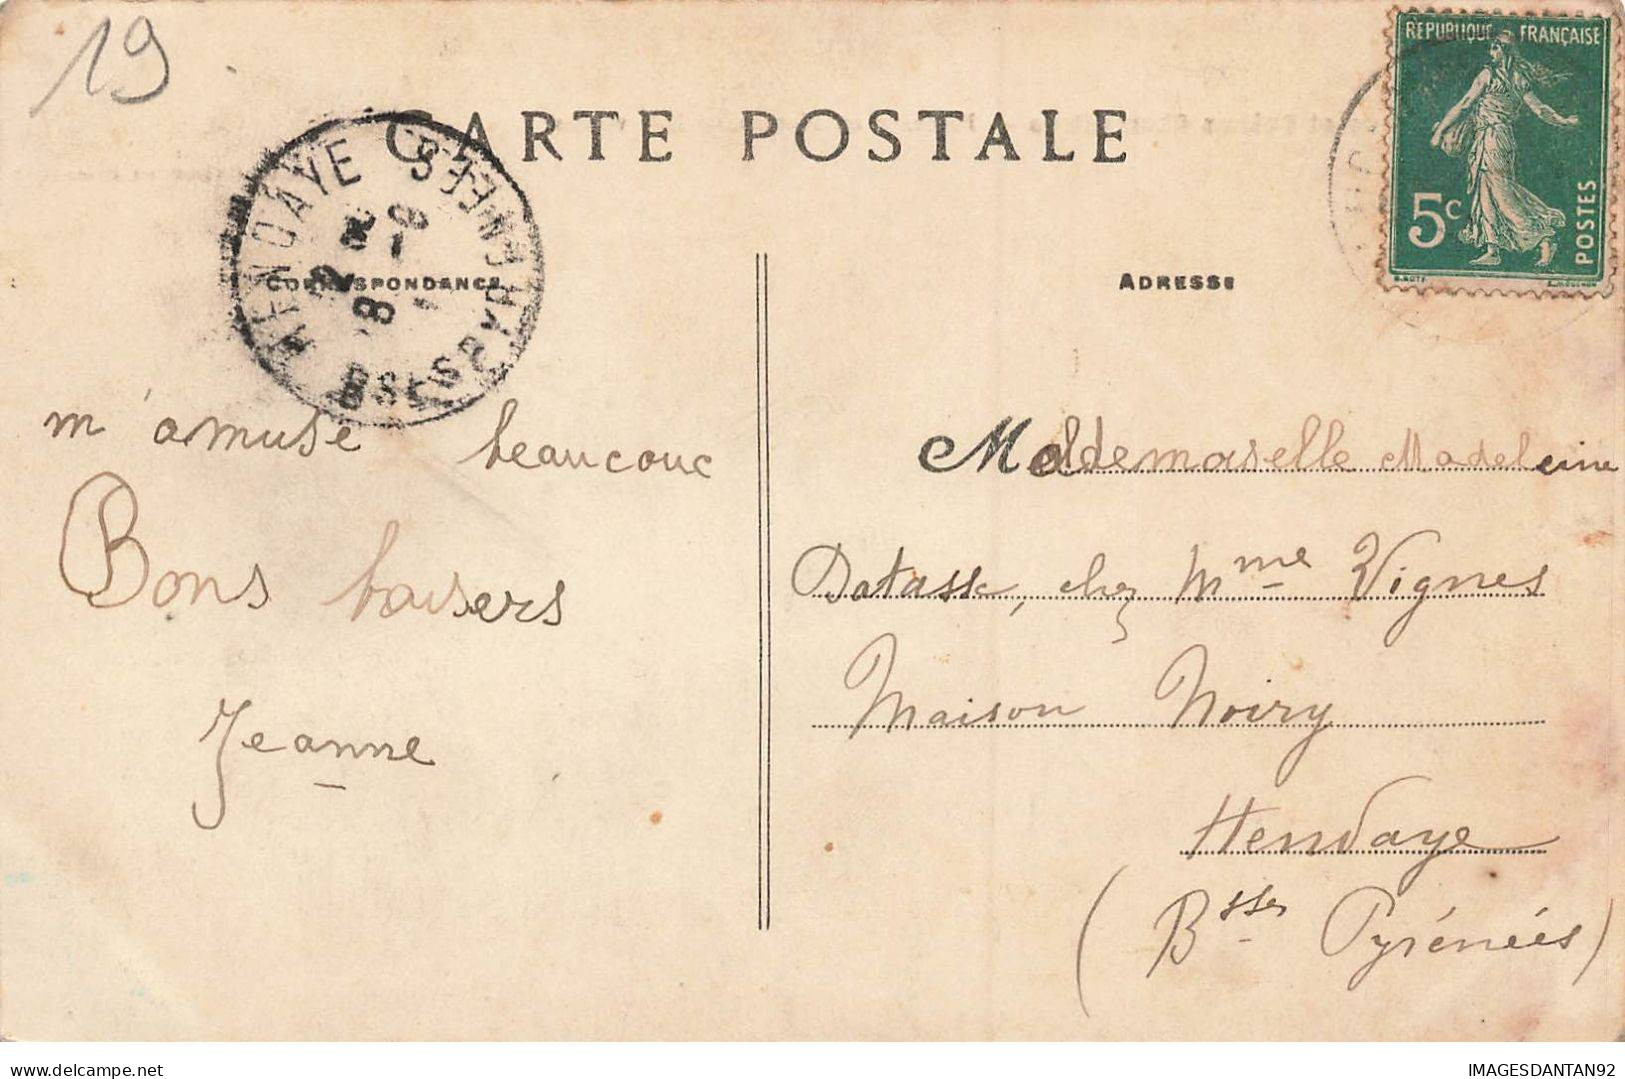 19
CARTE POSTALE
REPUBLIQUE FRANÇAISE
5c
POSTES
HENDAYE
BSES PYRÉNÉES
CORRESPONDANCE
ADRESSE
m'amuse beaucouc
Bons baisers
Jeanne
Mademoiselle Madeleine
Datasse, chez Mme Vignes
Maison Noiry
Hendaye
(Bsses Pyrénées)
IMAGESDANTAN92